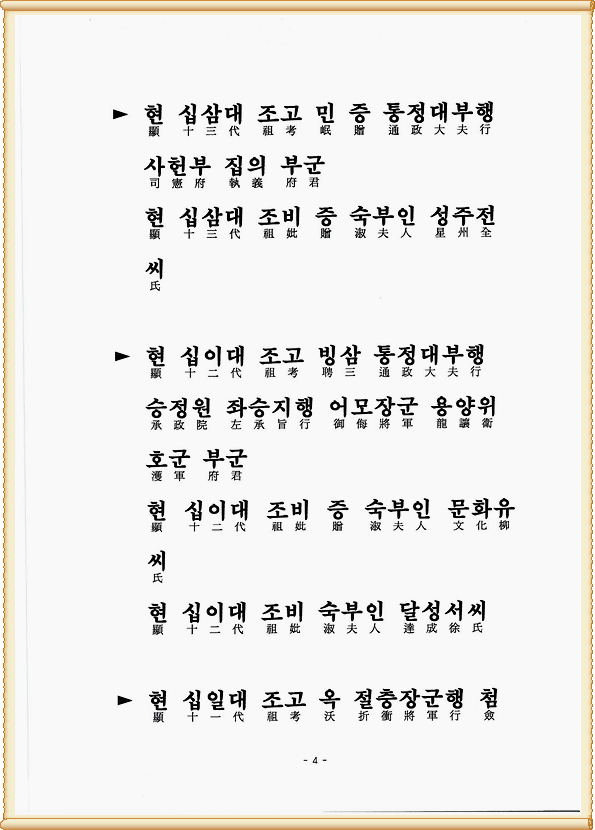 ► 현 십삼대 조고 민 증 통정대부행
顯 十三代 祖考 岷 贈 通政大夫行
사헌부 집의 부군
司憲府 執義 府君
현 십삼대 조비 증 숙부인 성주전
顯 十三代 祖妣 贈 淑夫人 星州全
씨
氏
► 현 십이대 조고 빙삼 통정대부행
顯 十二代 祖考 聘三 通政大夫行
승정원 좌승지행 어모장군 용양위
承政院 左承旨行 御侮將軍 龍讓衛
호군 부군
濩軍 府君
현 십이대 조비 증 숙부인 문화유
顯 十二代 祖妣 贈 淑夫人 文化柳
씨
氏
현 십이대 조비 숙부인 달성서씨
顯 十二代 祖妣 淑夫人 達成徐氏
► 현 십일대 조고 옥 절충장군행 첨
顯 十一代 祖考 沃 折衝將軍行 僉
- 4 -